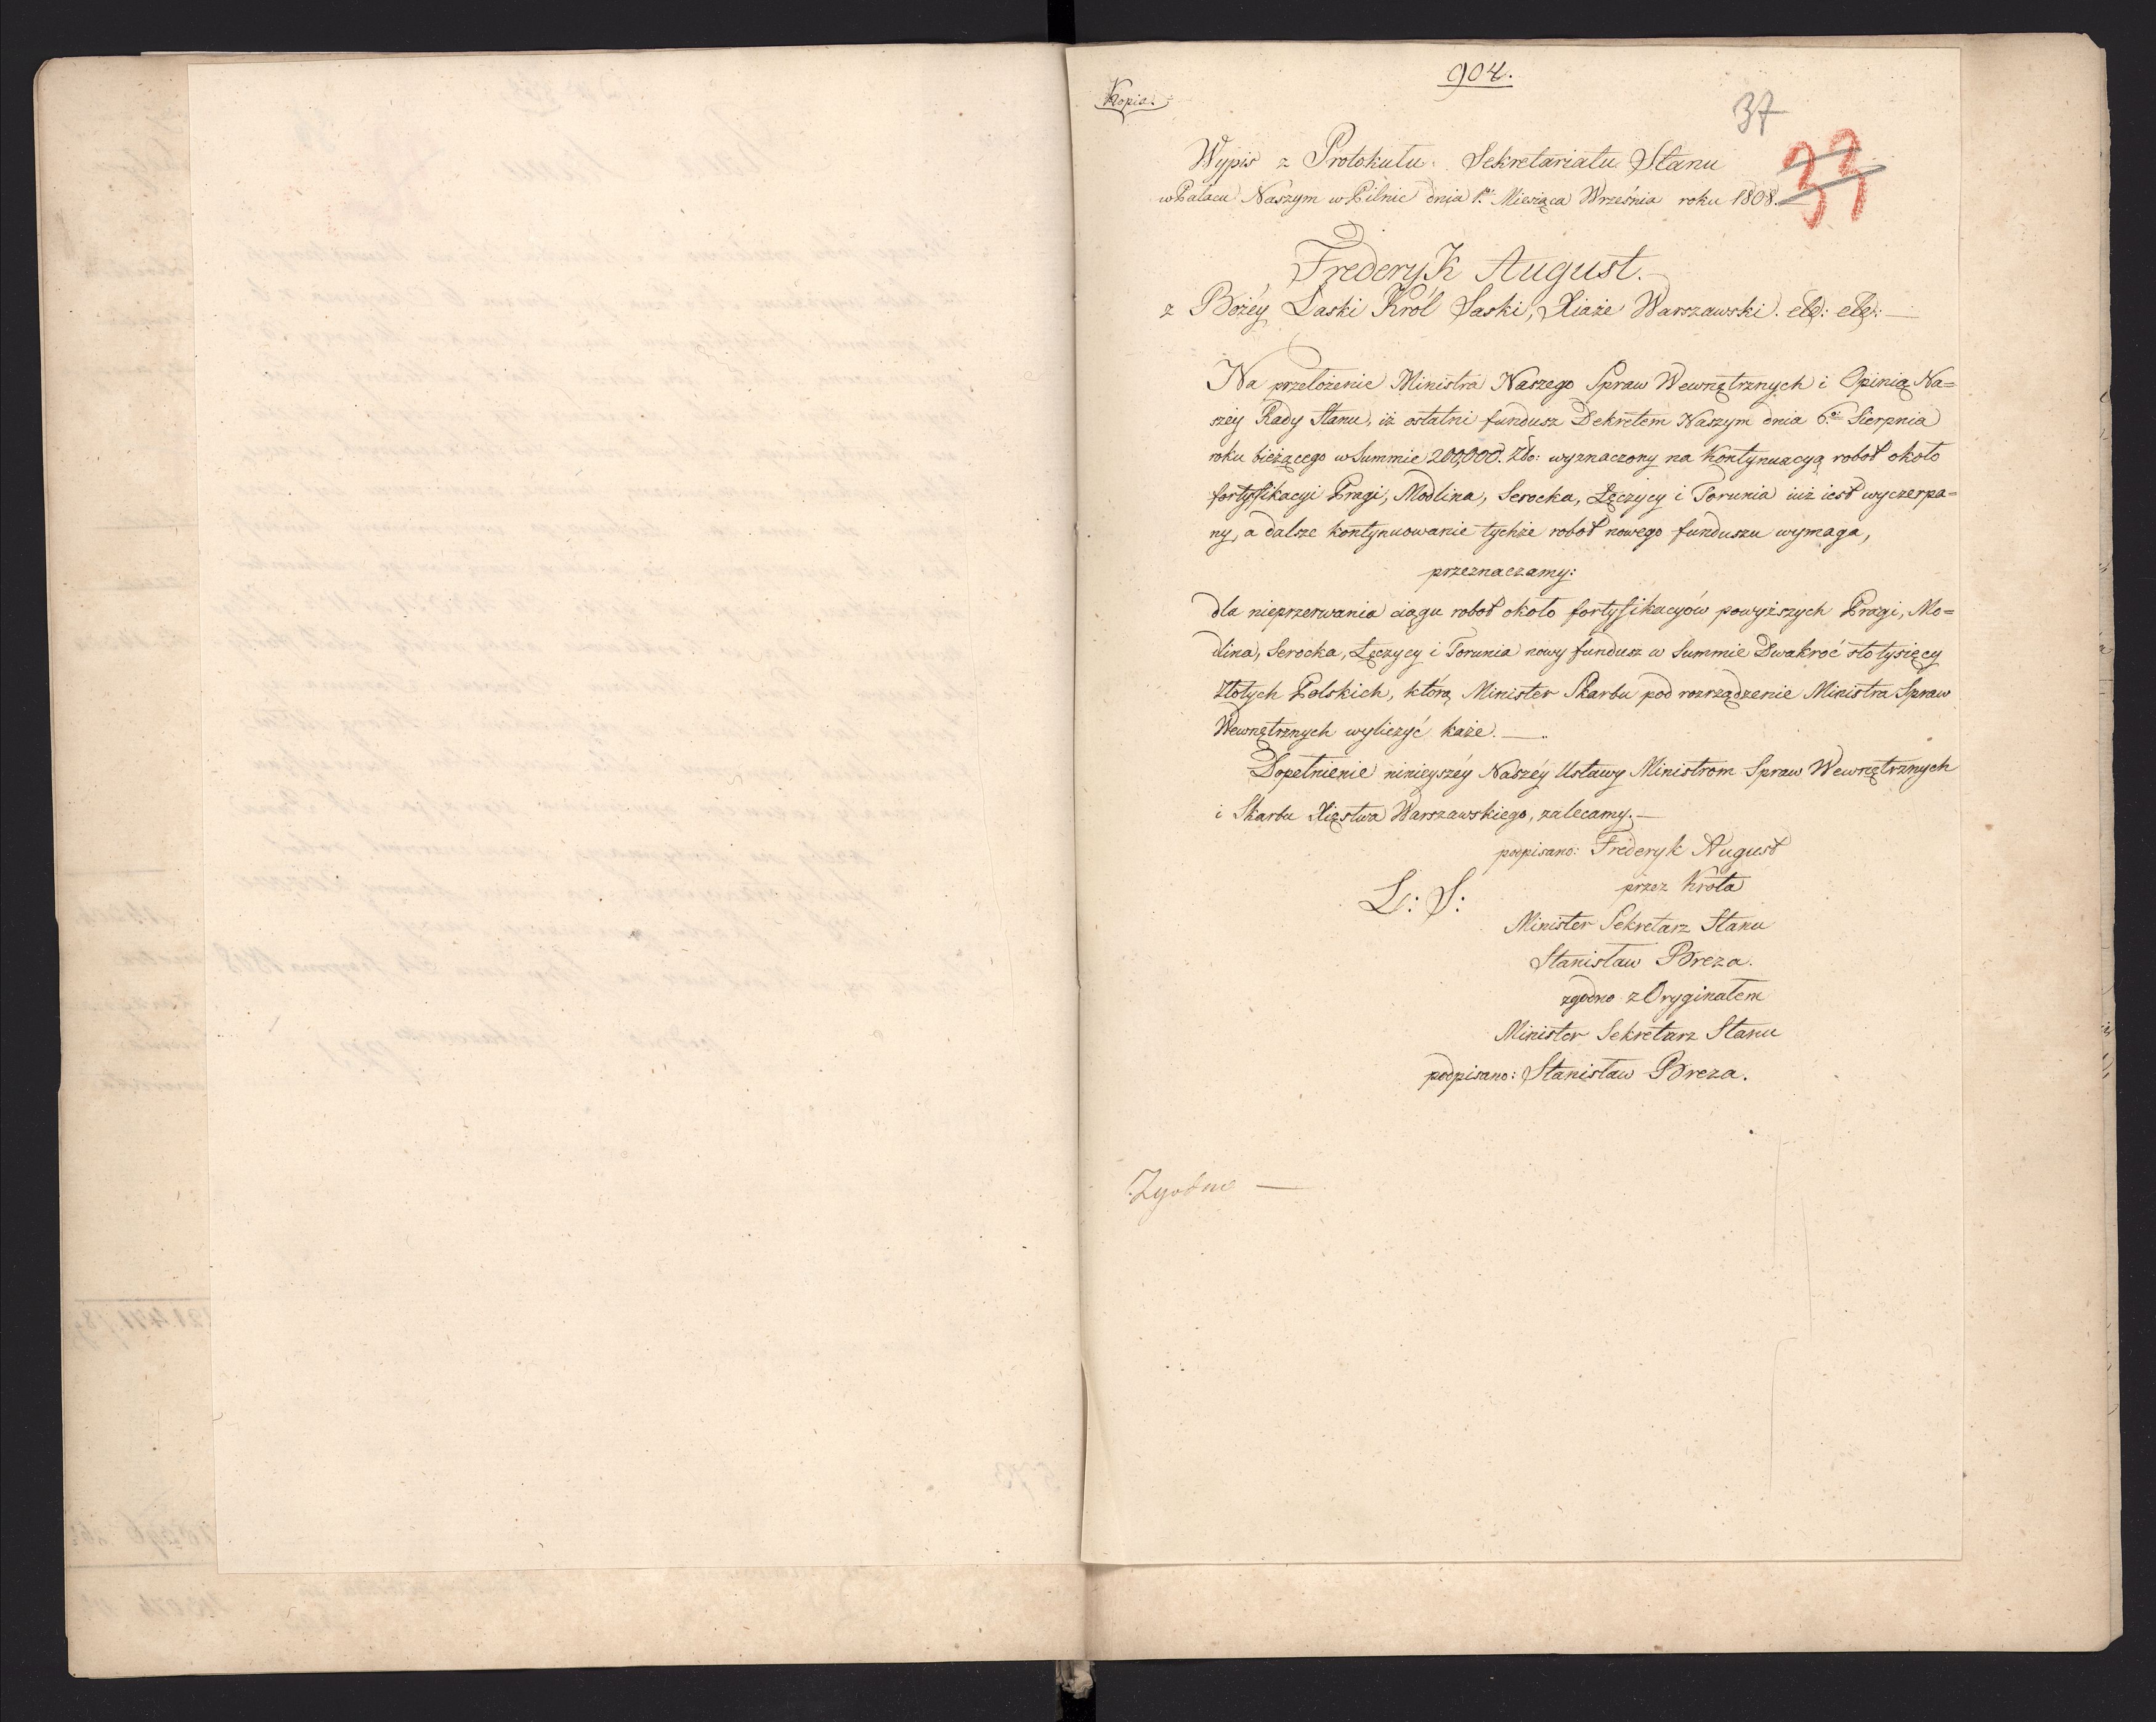 904.
Kopia.
37
33
Wypis z Protokułu Sekretariatu Stanu
w Pałacu Naszym w Pilnic dnia 1º Miesiąca Września roku 1808.
Frederyk August.
z Bożéy Łaski Król Saski, Xiąże Warszawski. etc: etc: —
Na przełożenie Ministra Naszego Spraw Wewnętrznych i Opinią Na=
széy Rady Stanu, iż ostatni fundusz Dekretem Naszym dnia 6º Sierpnia
roku bieżącego w Summie 200,000. Zło: wyznaczony na Kontynuacyą robot około
fortyfikacyi Pragi, Modlina, Serocka, Łęczycy i Torunia iuż iest wyczerpa=
ny, a dalsze kontynuowanie tychże robot nowego funduszu wymaga,
przeznaczamy:
dla nieprzerwania ciągu robot około fortyfikacyów powyższych Pragi, Mo=
dlina, Serocka, Łęczycy i Torunia nowy fundusz w Summie Dwakroć sto tysięcy
Złotych Polskich, którą Minister Skarbu pod rozrządzenie Ministra Spraw
Wewnętrznych wyliczyć każe. —
Dopełnienie ninieyszéy Naszéy Ustawy Ministrom Spraw Wewnętrznych
i Skarbu Xięstwa Warszawskiego, zalecamy. —
podpisano: Frederyk August
przez Króla
L: S:
Minister Sekretarz Stanu
Stanisław Breza.
zgodno z Oryginałem
Minister Sekretarz Stanu
podpisano: Stanisław Breza.
Zgodno —